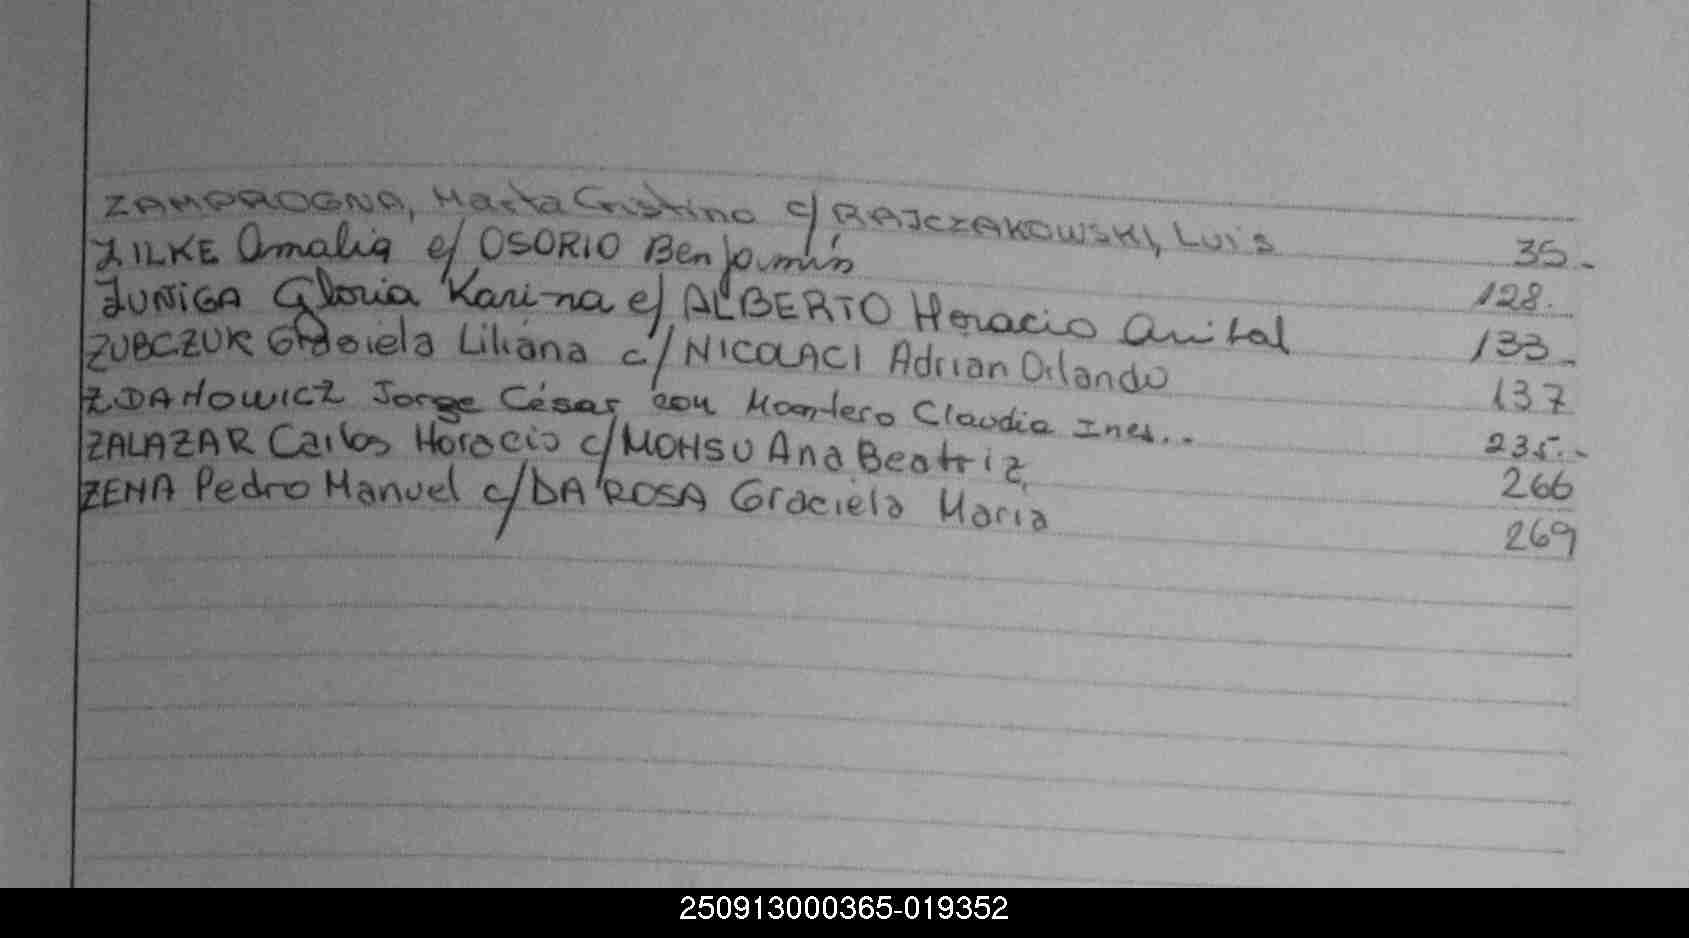 ZAMPROGNA, Marta Cristina c/ RAJCZAKOWSKI, LUIS 35.-
ZILKE Amalia c/ OSORIO Benjamín 128.
ZUÑIGA Gloria Karina c/ ALBERTO Horacio Anibal 133-
ZUBCZUK Graciela Liliana c/ NICOLACI Adrian Orlando 137
ZDANOWICZ Jorge César con Montero Claudia Ines.. 235.-
ZALAZAR Carlos Horacio c/ MOHSU Ana Beatriz 266
ZENA Pedro Manuel c/ DA ROSA Graciela Maria 269
250913000365-019352